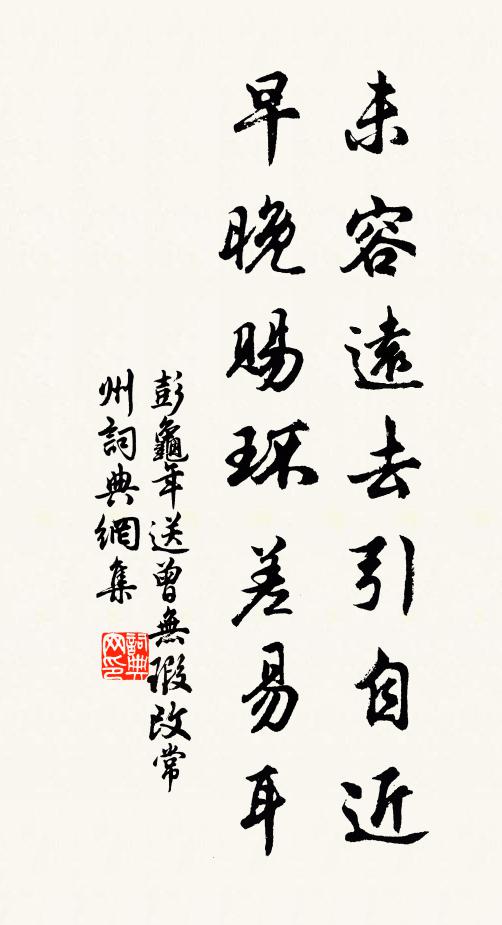 未容遠去引自近
早晚賜环差易耳
彭龜年送曾無瑕改常
州詞典網集
詞典
网印